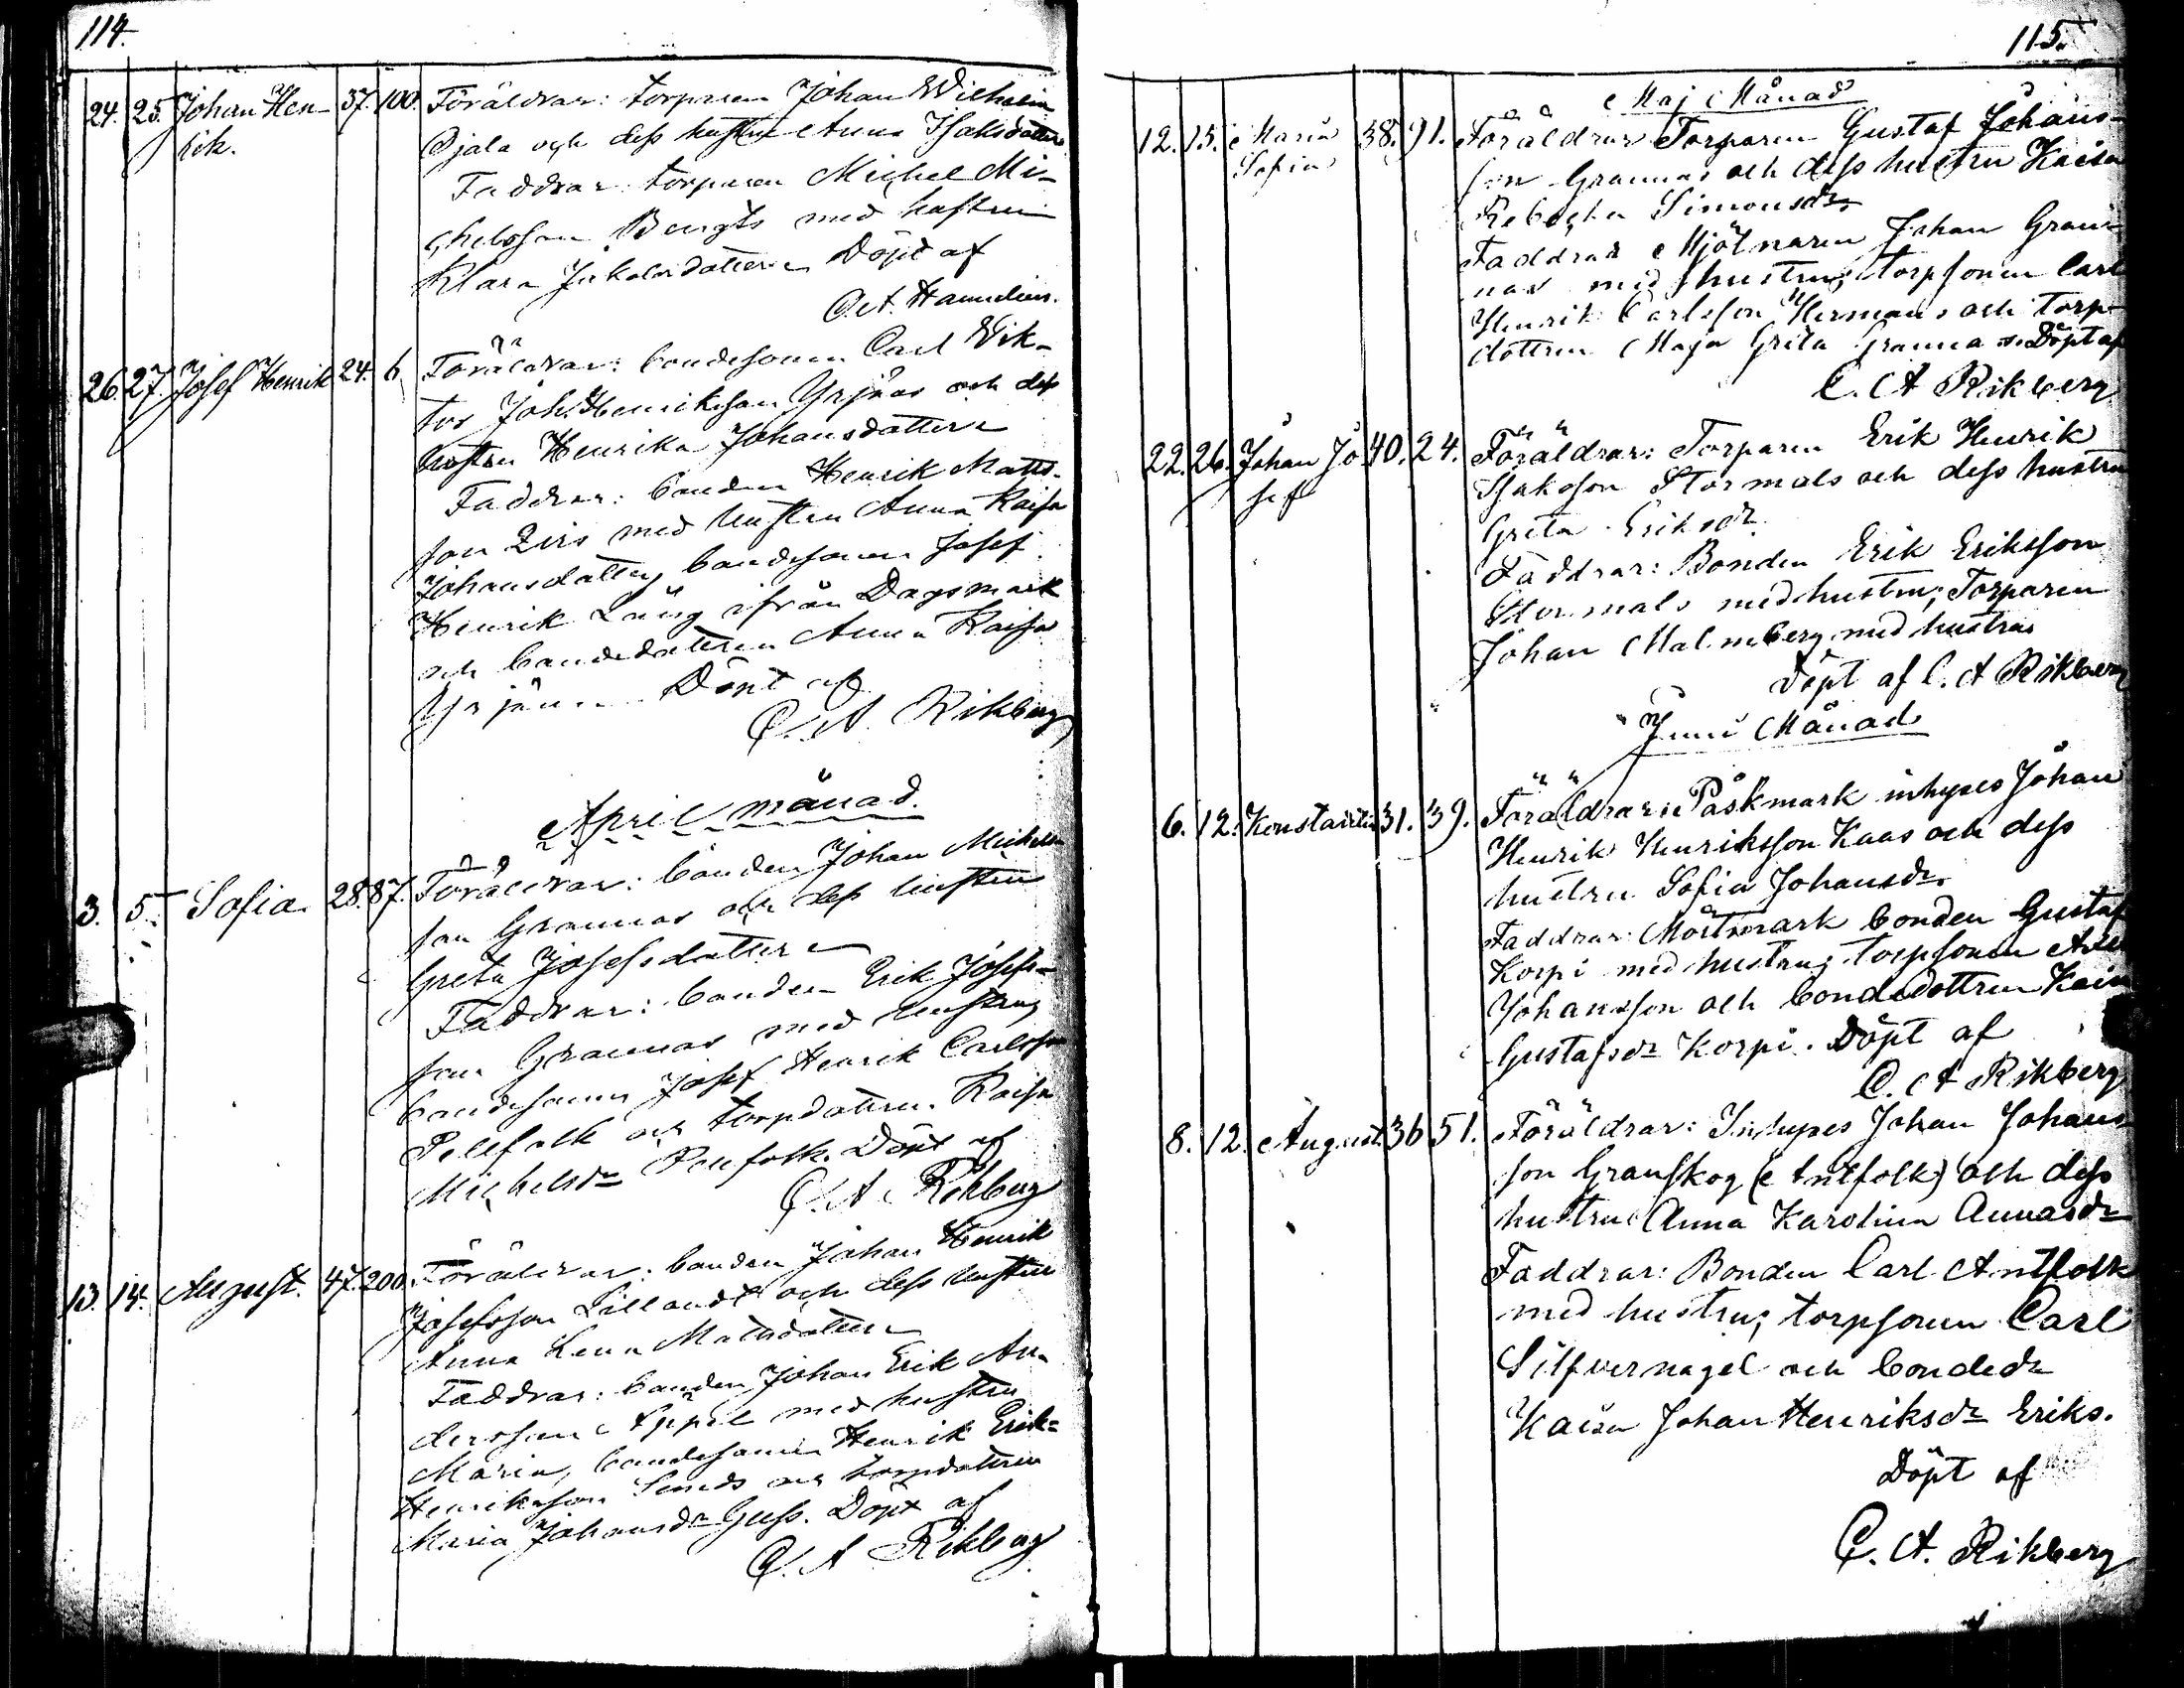 114.
24. 25. Johan Hen- 37. 100. Föräldrar: torparen Johan Wilhelm
rik. Ojala och dess hustru Anna Isaksdotter
Faddrar: torparen Michel Mi-
chelsson Bengts med hustru
Klara Jakobsdotter Döpt af
26. 27. Josef Henrik 24. 6 Föräldrar: bondesonen Carl Wik-
tor Joh. Henriksson Yrjäas och dess
hustru Henrika Johansdotter
Faddrar: bonden Henrik Matts-
son Zirs med hustru Anna Kaisa
Johansdotter, bondesonen Josef
Henrik Lång ifrån Dagsmark
och bondedottren Anna Kaisa
Döpt af
C. A. Rikberg
April månad.
3. 5. Sofia 28. 87. Föräldrar: bonden Johan Michels
son Grannas och dess hustru
Greta Josefsdotter
Faddrar: bonden Erik Josefs-
son Grannas med hustru,
bondesonen Josef Henrik Carlsson
Pellfolk och torpdottren Kaisa
Michelsdr Pellfolk. Döpt af
C. A. Rikberg
13. 14. August. 47. 200. Föräldrar: bonden Johan Henrik
Josefsson Lillandt och dess hustru
Anna Lena Mattsdotter
Faddrar: bonden Johan Erik An-
dersson Äppel med hustru
Maria, bondesonen Henrik Erik-
Henriksson och torpdottren
Maria Johansdr Guss. Döpt af
C. A. Rikberg
115.
Maj Månad
12. 15. Maria 38. 91. Föräldrar Torparen Gustaf Johans-
Sofia son Grannas och dess hustru Kaisa
Rebecka Simonsdr
Faddrar Mjölnaren Johan Gran-
nas med hustru; torpsonen Carl
Henrik Carlsson Hermans och torp-
dottren Maja Greta Granna s. Döpt af
C. A Rikberg
22. 26. Johan Jo 40. 24. Föräldrar: Torparen Erik Henrik
sef Isaksson Stormals och dess hustru
Greta Eriksdr
Faddrar: Bonden Erik Eriksson
Stormals med hustru; Torparen
Johan Malmberg med hustru
Döpt af C. A Rikberg
Juni Månad
6. 12. Konstantin 31. 39. Föräldrar: i Påskmark inhyses Johan
Henrik Henriksson Kaas och dess
hustru Sofia Johansdr
Faddrar: Mörtmark bonden Gustaf
Korpi med hustru; torpsonen
Johansson och bondedottren Kaisa
Gustafsdr Korpi. Döpt af
C. A Rikberg
8. 12. August. 36 51. Föräldrar: Inhyses Johan Johans
son Granskog (Antfolk) och dess
hustru Anna Karolina Annasdr
Faddrar: Bonden Carl Antfolk
med hustru; torpsonen Carl
Silfvernagel och bondedr
Kaisa Johan Henriksdr Eriks.
Döpt af
C. A. Rikberg